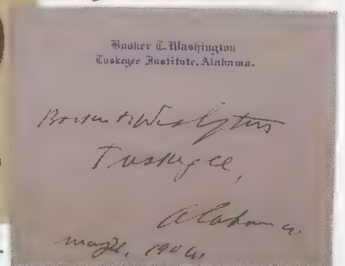 Booker T. Washington
Tuskegee Institute, Alabama.
Booker T. Washington
Tuskegee,
Alabama.